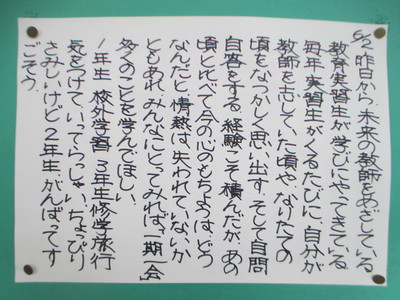 6/2 昨日から、未来の教師をめざしている
教育実習生が学びにやってきている。
毎年実習生がくるたびに、自分が
教師を志していた頃や、なりたての
頃をなつかしく思い出す。そして自問
自答をする。経験こそ積んだが、あの
頃と比べて今の心のもちようはどう
なんだと、情熱は失われていないか
ともあれ、みんなにとってみれば、「一期一会」
多くのことを学んでほしい。
1年生 校外学習 3年生修学旅行
気をつけていってらっしゃい。ちょっぴり
さみしいけど2年生、がんばってす
ごそう。